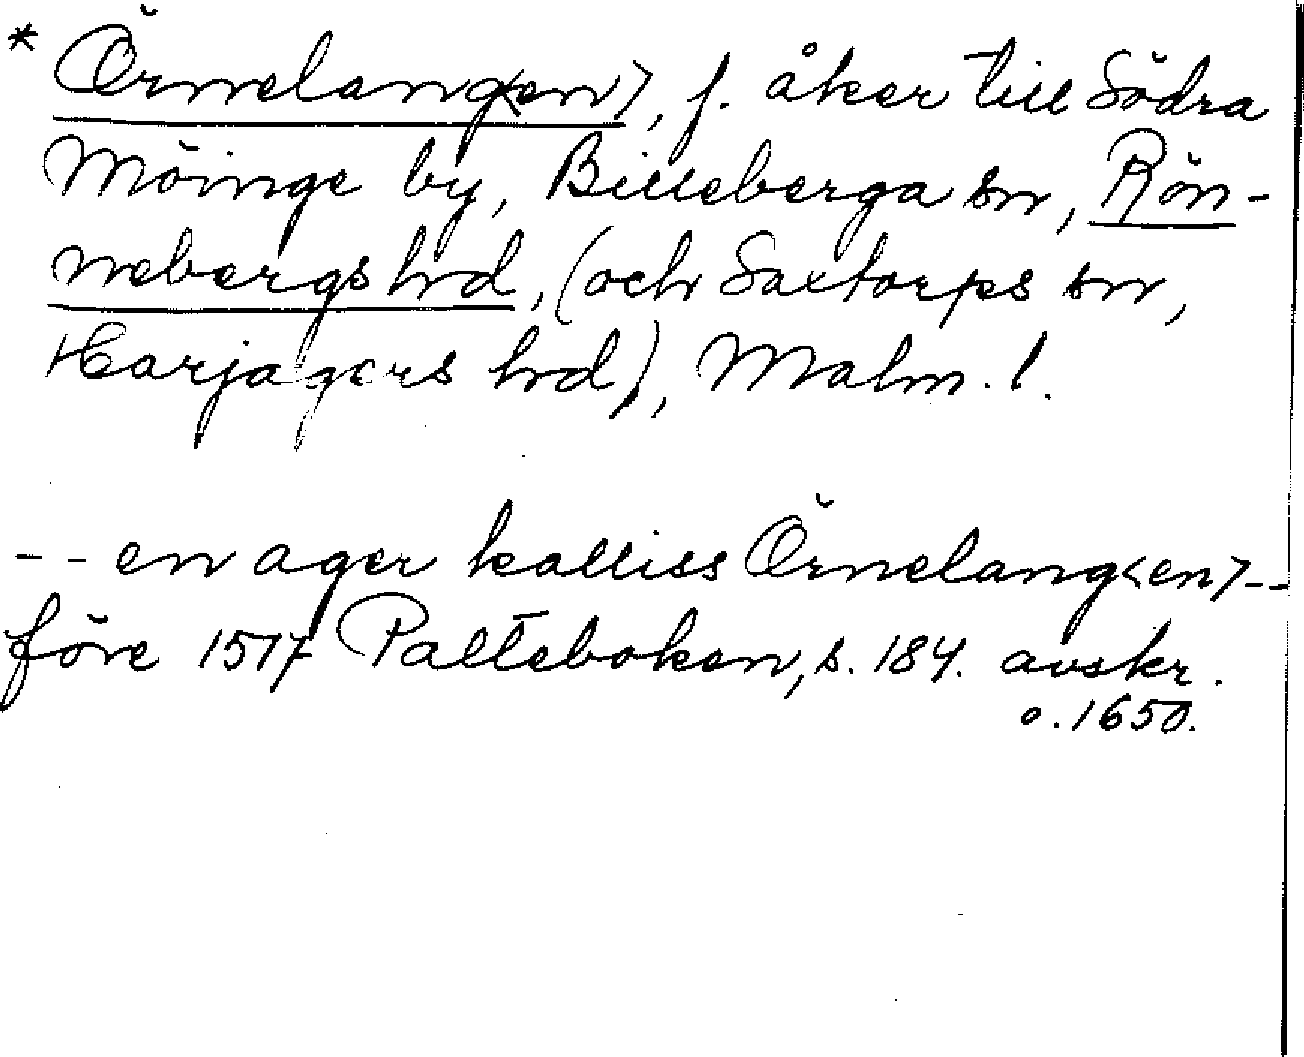 * Örnelang<en>, f. åker till Södra
Möinge by, Billeberga sn, Rön-
nebergs hrd, (och Saxtorps sn,
Harjagers hrd), Malm. l.
-- en ager kalliss Örnelang<en>--
före 1517 Palteboken, s. 184. avskr.
o. 1650.